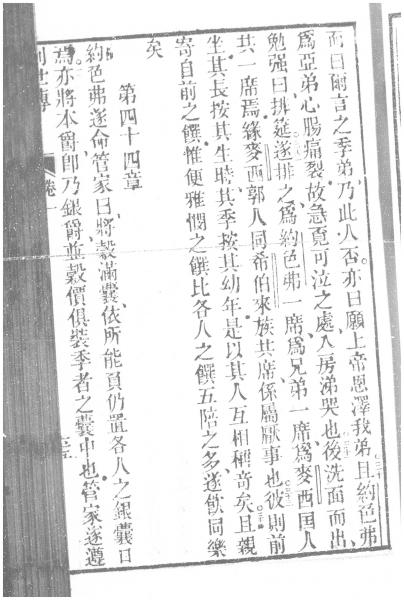 而曰爾言之季弟乃此人否亦曰願上帝恩澤我弟且約色弗
爲亞弟心腸痛裂故急覓可泣之處入房涕哭也後洗面而出
勉强曰排筵遂排之爲約色弗一席爲兄弟一席爲麥西国人
共一席焉緣麥西郭人同希伯來族共席係屬厭事也彼則前
坐其長按其生時其季按其幼年是以其人互相稱奇矣且親
寄自前之饌惟便雅憫之饌比各人之饌五陪之多遂飲同樂
矣
第四十四章
約色弗遂命管家曰將穀滿囊依所能負仍置各人之銀囊口
焉亦將本爵卽乃銀爵並穀價俱裝季者之囊中也管家遂遵
創世傳 卷一